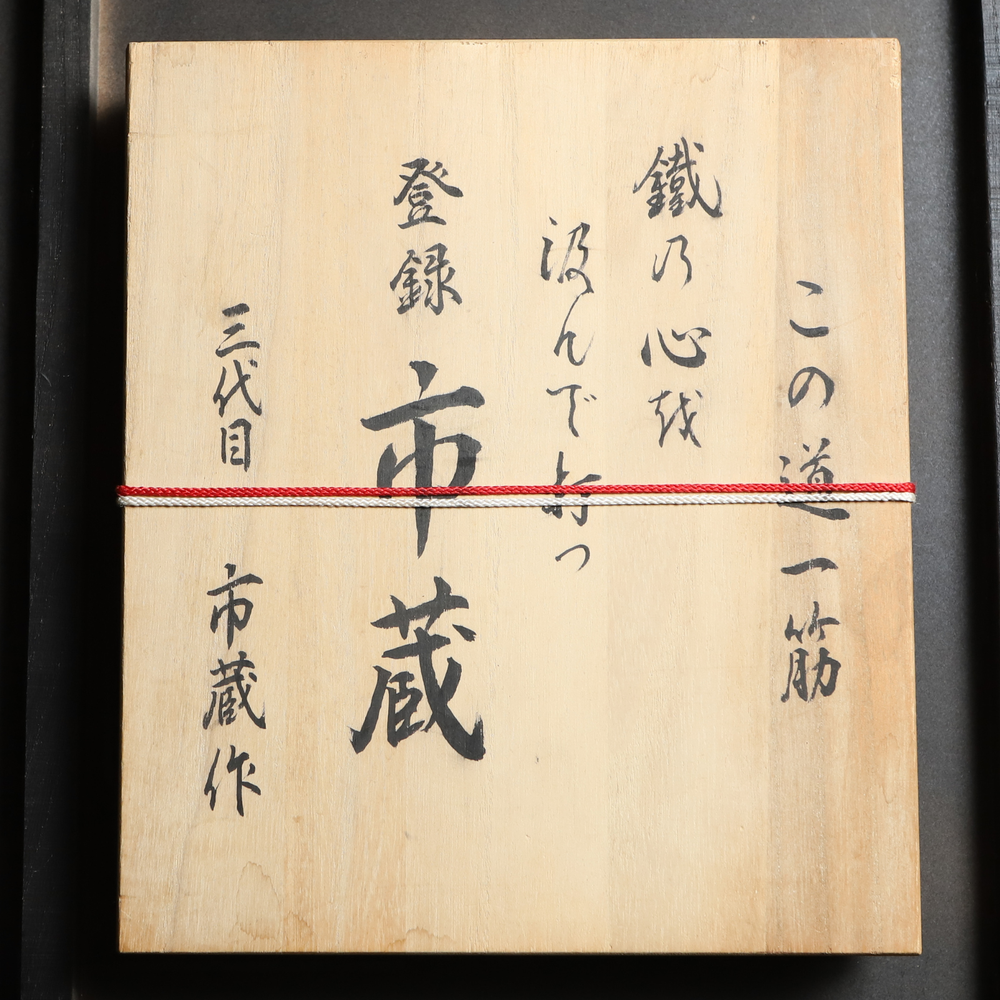 この道一筋
鐵乃心を
汲んで打つ
登録 市蔵
三代目 市蔵作